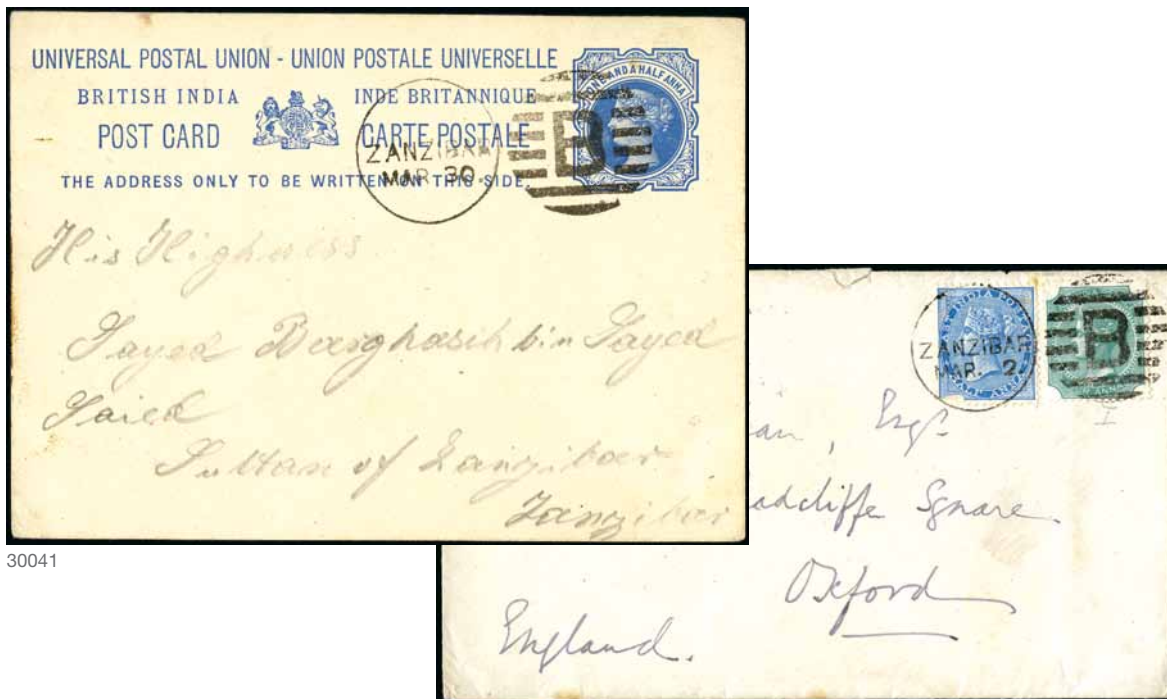 UNIVERSAL POSTAL UNION - UNION POSTALE UNIVERSELLE
BRITISH INDIA INDE BRITANNIQUE
POST CARD CARTE POSTALE
THE ADDRESS ONLY TO BE WRITTEN ON THIS SIDE.
ONE AND A HALF ANNA
ZANZIBAR
MAR. 30.
B
His Highness
Sayed Barghasih bin Sayed
Saied
Sultan of Zanzibar
Zanzibar
30041
ZANZIBAR
MAR. 2.
B
HALF ANNA
Esqr
adcliffe Square.
Oxford
England.